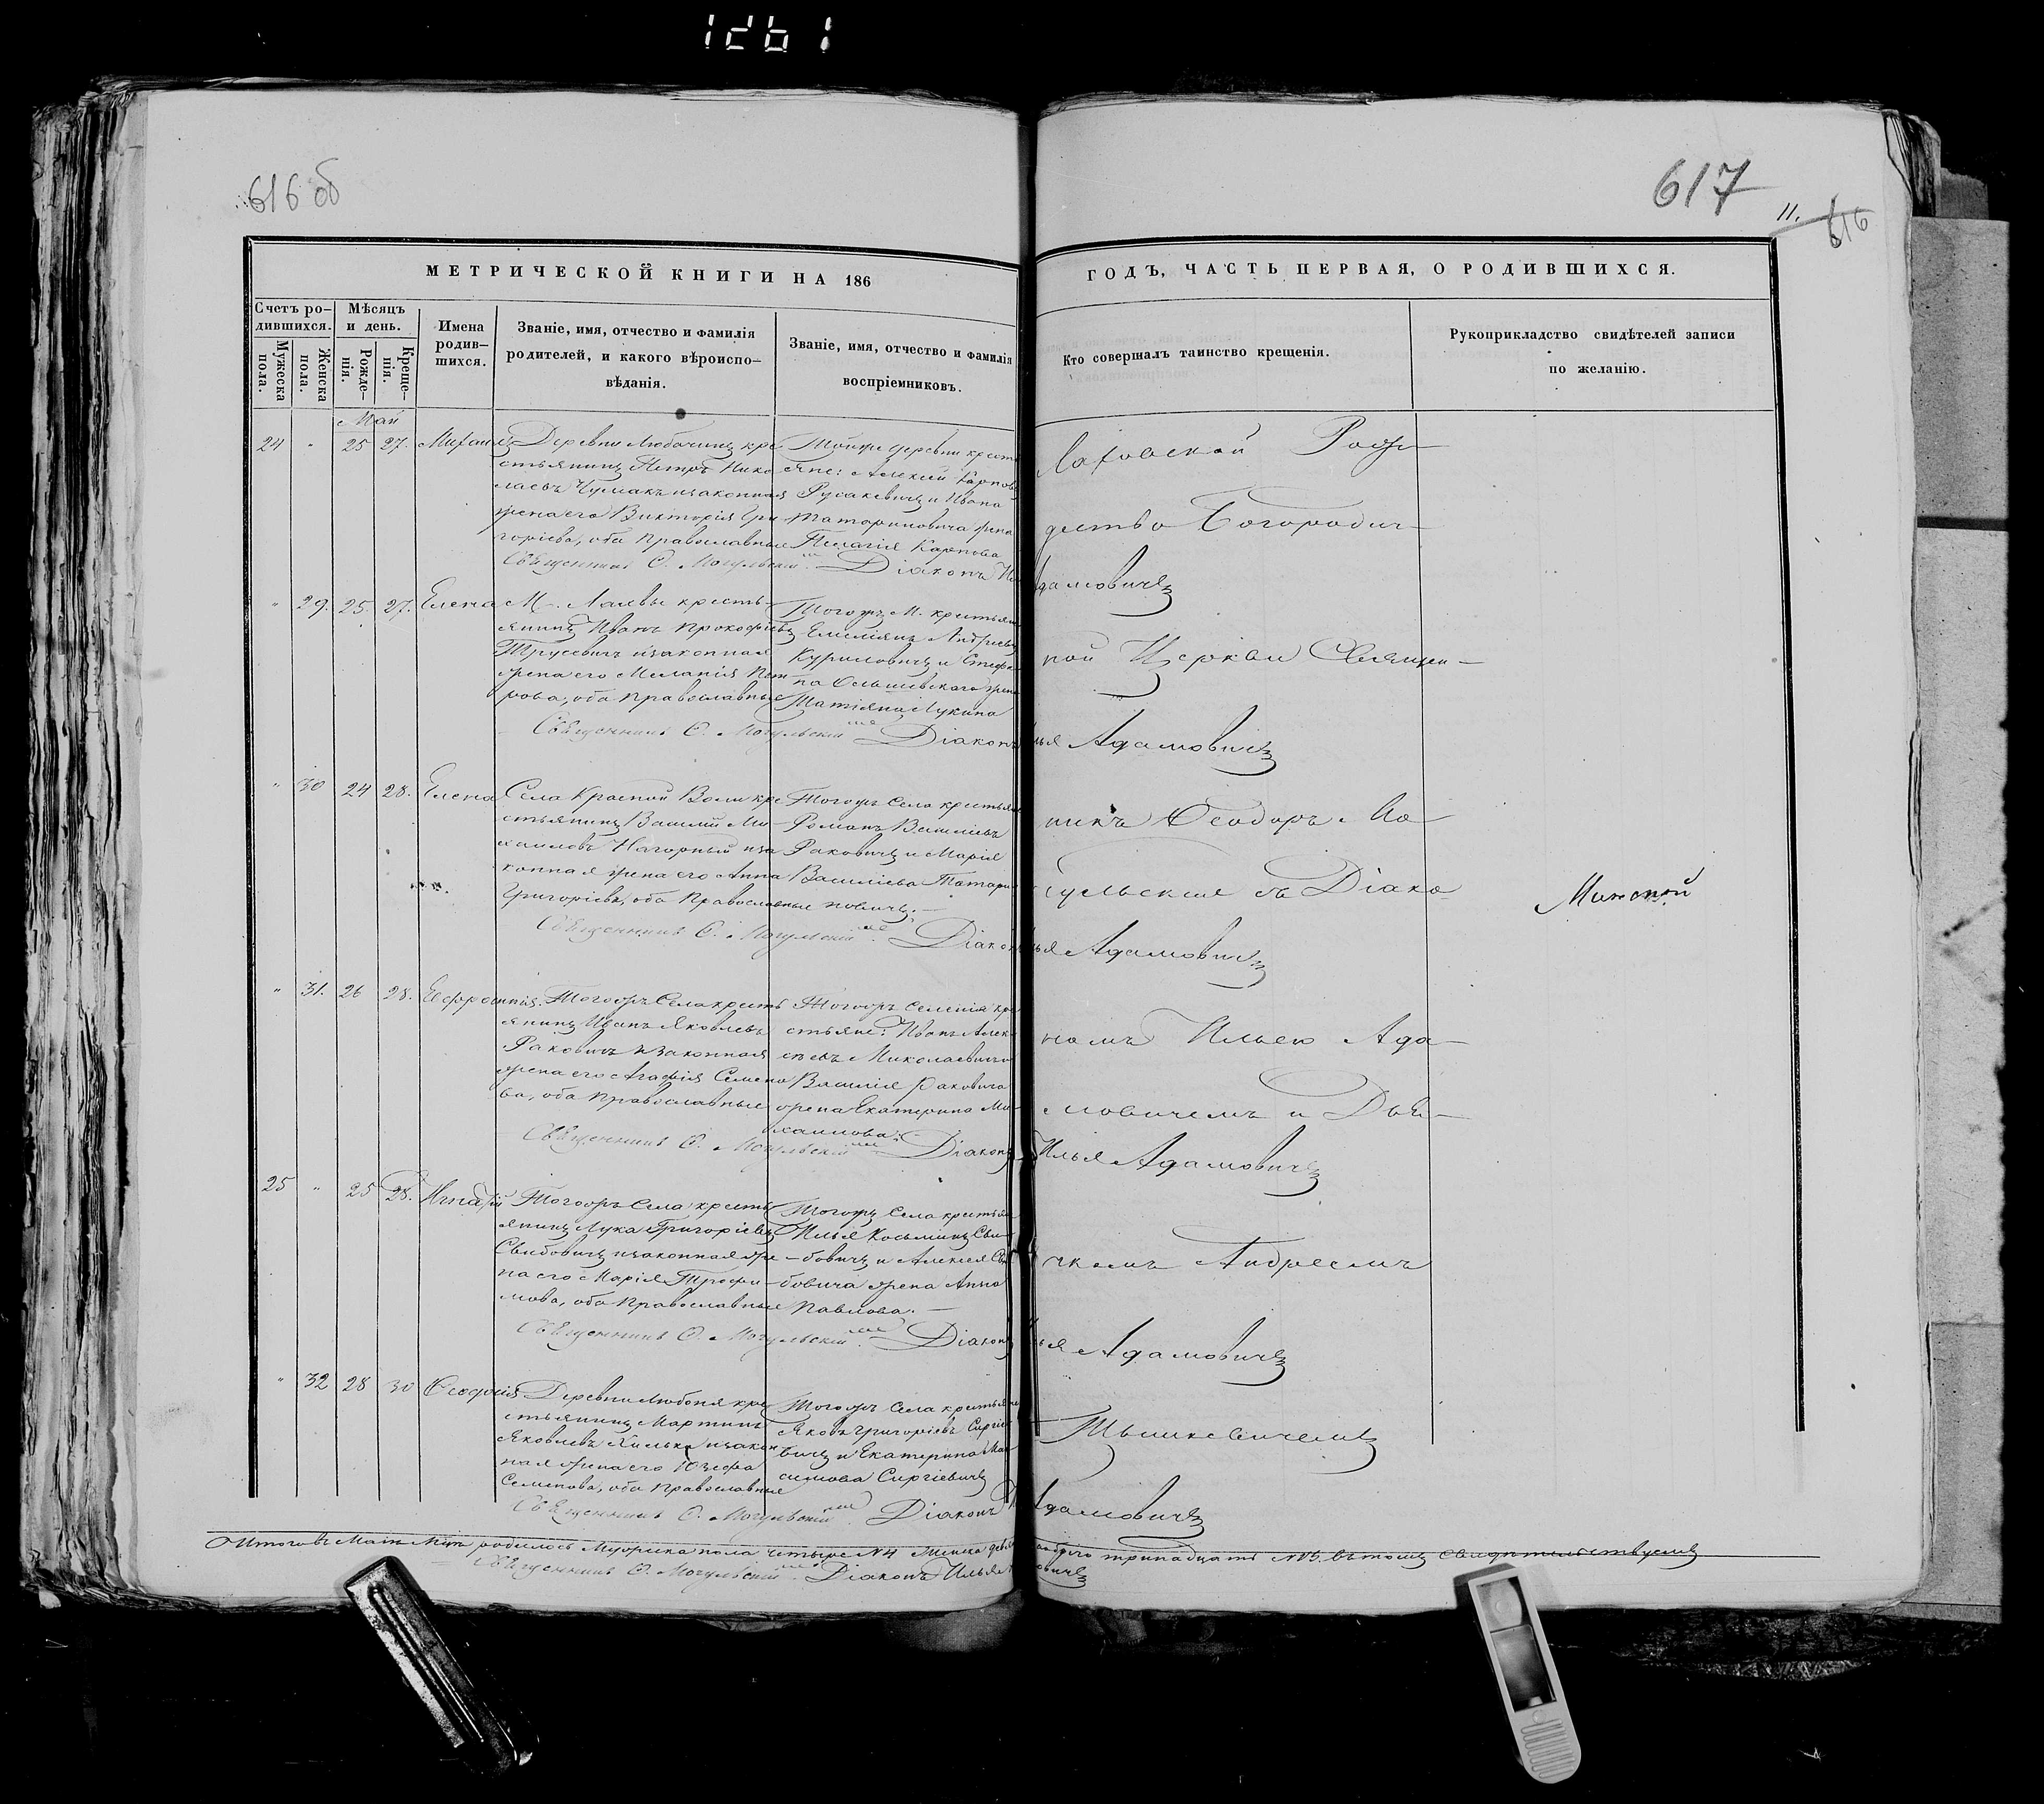 1261
616 об
617
11.
616
МЕТРИЧЕСКОЙ КНИГИ НА 186
ГОДЪ, ЧАСТЬ ПЕРВАЯ, О РОДИВШИХСЯ.
Счетъ ро-
дившихся.
Мужеска
пола.
Женска
пола.
Мѣсяцъ
и день.
Рожде-
нія.
Креще-
нія.
Имена
родив-
шихся.
Званіе, имя, отчество и фамилія
родителей, и какого вѣроиспо-
вѣданія.
Званіе, имя, отчество и фамилія
воспріемниковъ.
Кто совершалъ таинство крещенія.
Рукоприкладство свидѣтелей записи
по желанію.
Май
24 " 25 27. Михаилъ
Деревни Любачинъ кре
стьянинъ Петръ Нико
лаевъ Чумакъ изаконная
жена его Викторія Гри
горіева, оба Православные
Тойже деревни крестья
яне: Алексей Карповъ
Русакевичъ и Ивана
Татариновича жена
Пелагія Карпова
Священникъ Ѳ. Могульскій Діаконъ
Адамовичъ
" 29. 25. 27. Елена
М. Лахвы кресть-
янинъ Иванъ Прокофьевъ
Трусевичъ изаконная
жена его Меланія Пет
рова, оба Православные
Тогожъ М. крестьяне
Емеліянъ Андреевъ
Куриловичъ и Стефа-
на Ольшевскаго жена
Татіяна Лукина
Священникъ Ѳ. Могульскій Діаконъ
Илья Адамовичъ
" 30 24 28. Елена
Села Красной Воли кре
стьянинъ Василій Ми-
хаиловъ Нагорный иза
конная жена его Анна
Григоріева, оба Православные
Тогожъ Села крестьяне
Романъ Васильевъ
Раковичъ и Марія
Василіева Татари
новичъ.
Священникъ Ѳ. Могульскій Діаконъ
Илья Адамовичъ
" 31. 26 28. Евфросинія
Тогожъ Села кресть
янинъ Иванъ Яковлевъ
Раковичъ изаконная
жена его Агафія Семено
ва, оба Православные
Тогожъ Селенія кре
стьяне: Иванъ Алек-
сѣевъ Миколаевичъ и
Василія Раковича
жена Екатерина Ми-
хаилова.
Священникъ Ѳ. Могульскій Діаконъ
Илья Адамовичъ
25 " 25 28. Игнатій
Тогожъ Села кресть
янинъ Лука Григоріевъ
Свибовичъ изаконная же
на его Марія Трофи-
мова, оба Православные
Тогожъ Села крестьяне
Илья Косьминъ Сви-
бовичъ и Алексея Сви
бовича жена Анна
Павлова.
Священникъ Ѳ. Могульскій Діаконъ
Илья Адамовичъ
" 32 28 30 Ѳеодосія
Деревни Любоня кре
стьянинъ Мартинъ
Яковлевъ изакон
ная жена его Юзефа
Семенова, оба Православные
Тогожъ Села крестьяне
Яковъ Григоріевъ Сергіе
вичъ и Екатерина Мак
симова Сергіевичъ
Священникъ Ѳ. Могульскій Діаконъ
Адамовичъ
Лаховской Рож-
дество Богородич-
ной Церкви Священ-
никъ Ѳеодоръ Мо-
гульскій съ Діако
номъ Ильею Ада-
мовичемъ и Дья-
чкомъ Андреемъ
Тышкевичемъ
Минской
Итого въ Маѣ Мцѣ родилось Мужеска пола четыре №4 Женска тринадцать въ томъ свидѣтельствуемъ
Священникъ Ѳ. Могульскій Діаконъ Илья Адамовичъ